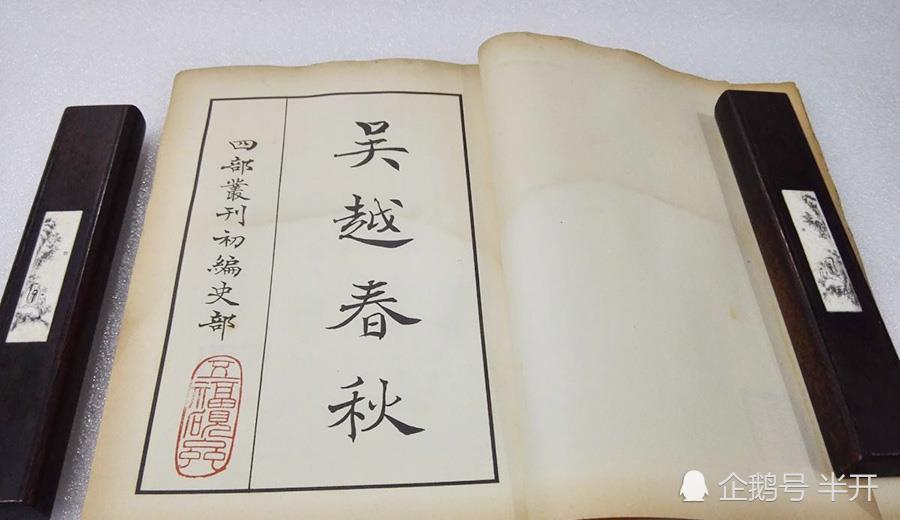 吴越春秋
四部叢刊初編史部
企鹅号 半开